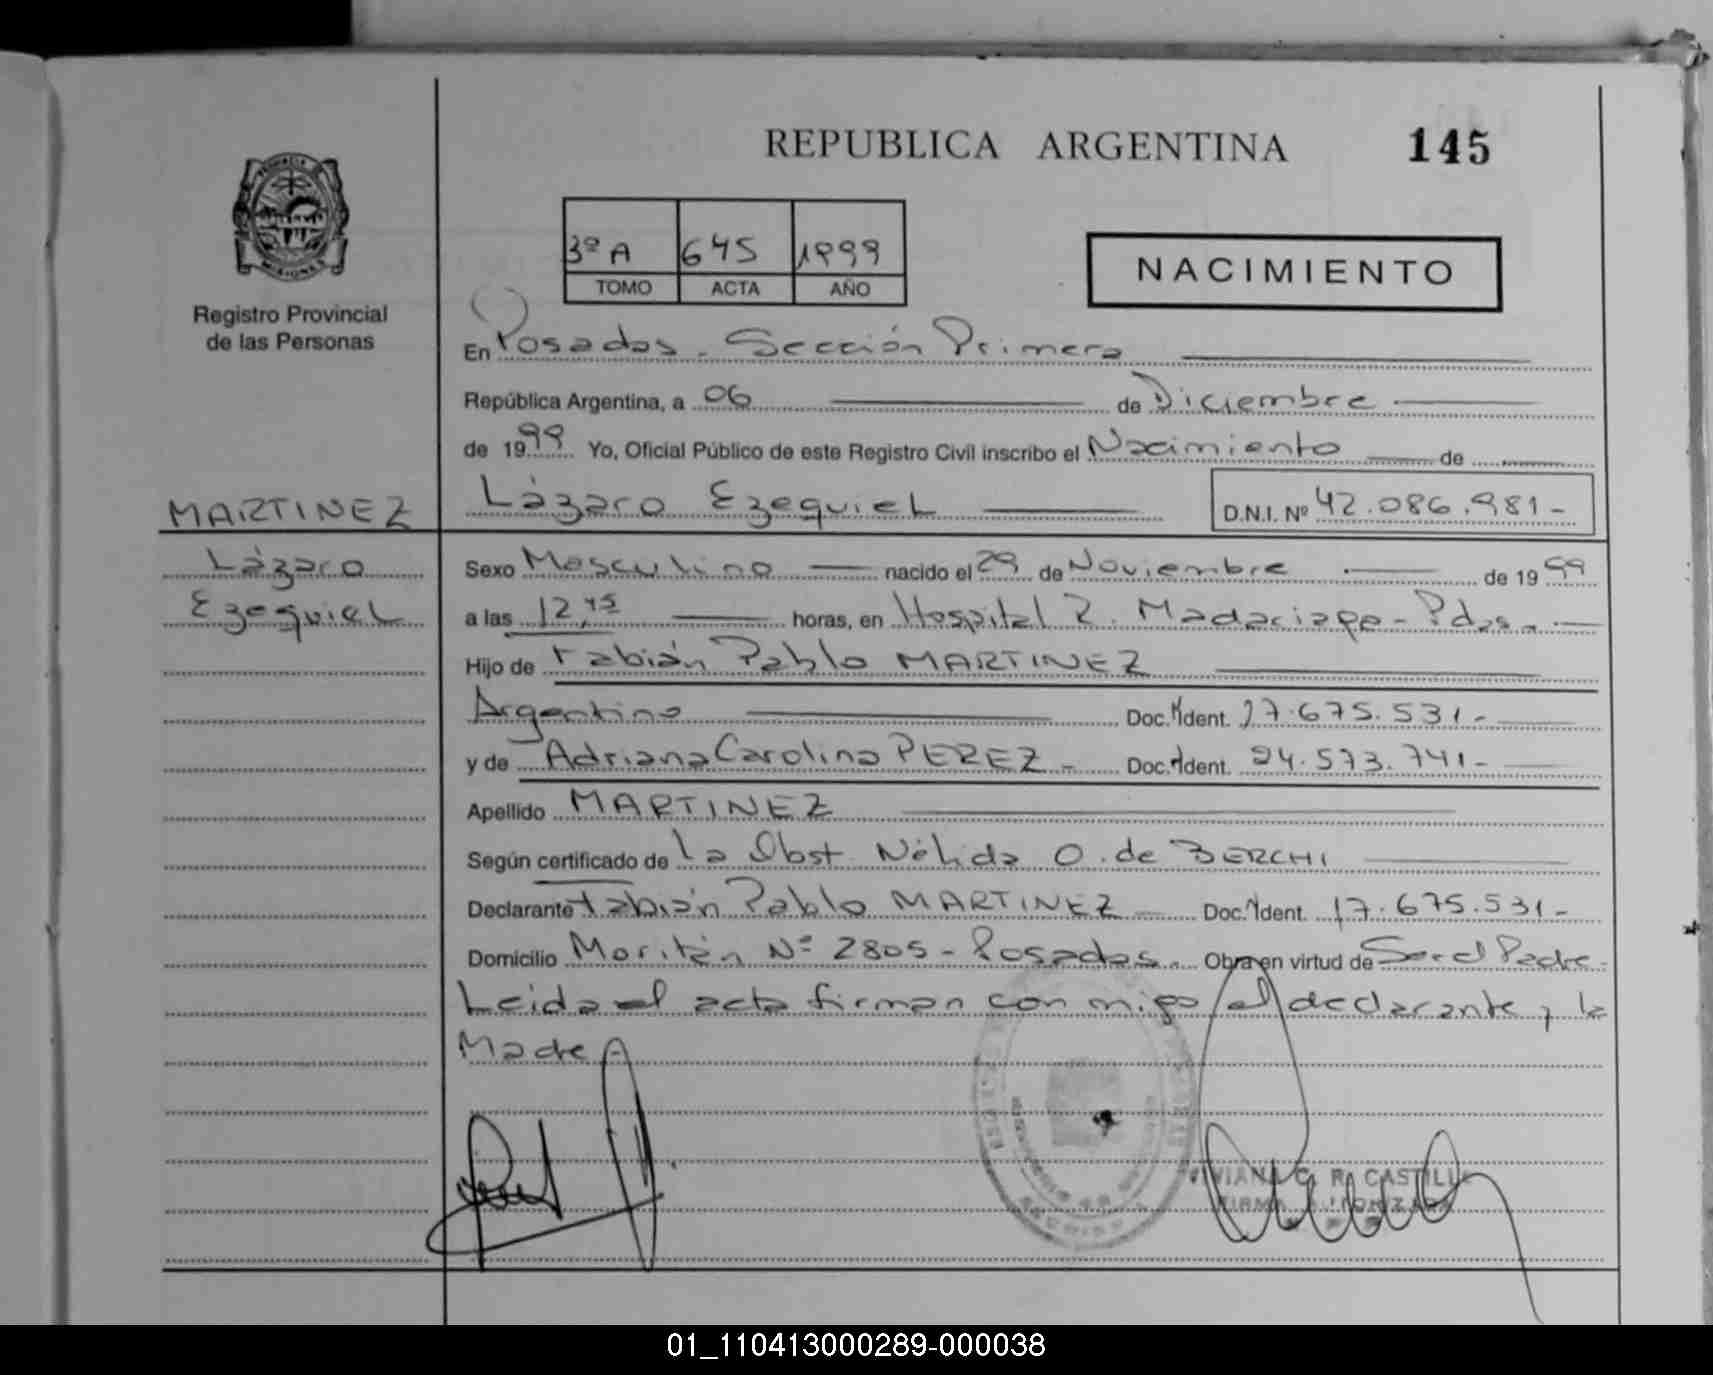 REPUBLICA ARGENTINA 145
3º A 645 1999
TOMO ACTA AÑO
NACIMIENTO
Registro Provincial
de las Personas
En Posadas - Sección Primera
República Argentina, a 06 de Diciembre
de 1999 Yo, Oficial Público de este Registro Civil inscribo el Nacimiento de
MARTINEZ
Lázaro Ezequiel D.N.I. Nº 42.086.981-
Lázaro
Ezequiel
Sexo Masculino nacido el 29 de Noviembre de 1999
a las 12,45 horas, en Hospital R. Madariaga - Pdas.
Hijo de Fabián Pablo MARTINEZ
Argentino Doc. Ident. 17.675.531-
y de Adriana Carolina PEREZ - Doc. Ident. 24.573.741-
Apellido MARTINEZ
Según certificado de La Obst. Nélida O. de BERCHI
Declarante Fabián Pablo MARTINEZ Doc. Ident. 17.675.531-
Domicilio Nº 2805 - Posadas. Obra en virtud de Ser el Padre-
Leida el acta firman con migo el declarante y la
Madre
VIVIANA C. R. CASTILL
FIRMA AUTORIZADA
01_110413000289-000038